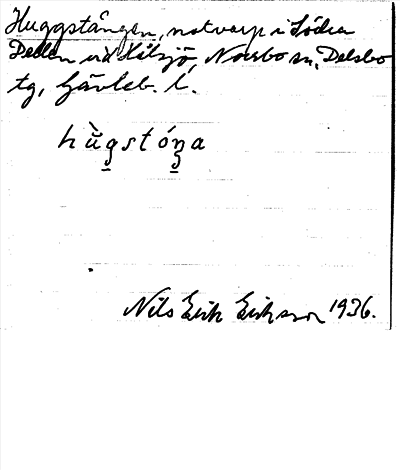 Huggstången, notvarp i Södra
Dellen vid Hålsjö, Norrbo sn, Delsbo
tg, Gävleb. l.
hùgstóŋa
Nils Erik Eriksson 1936.